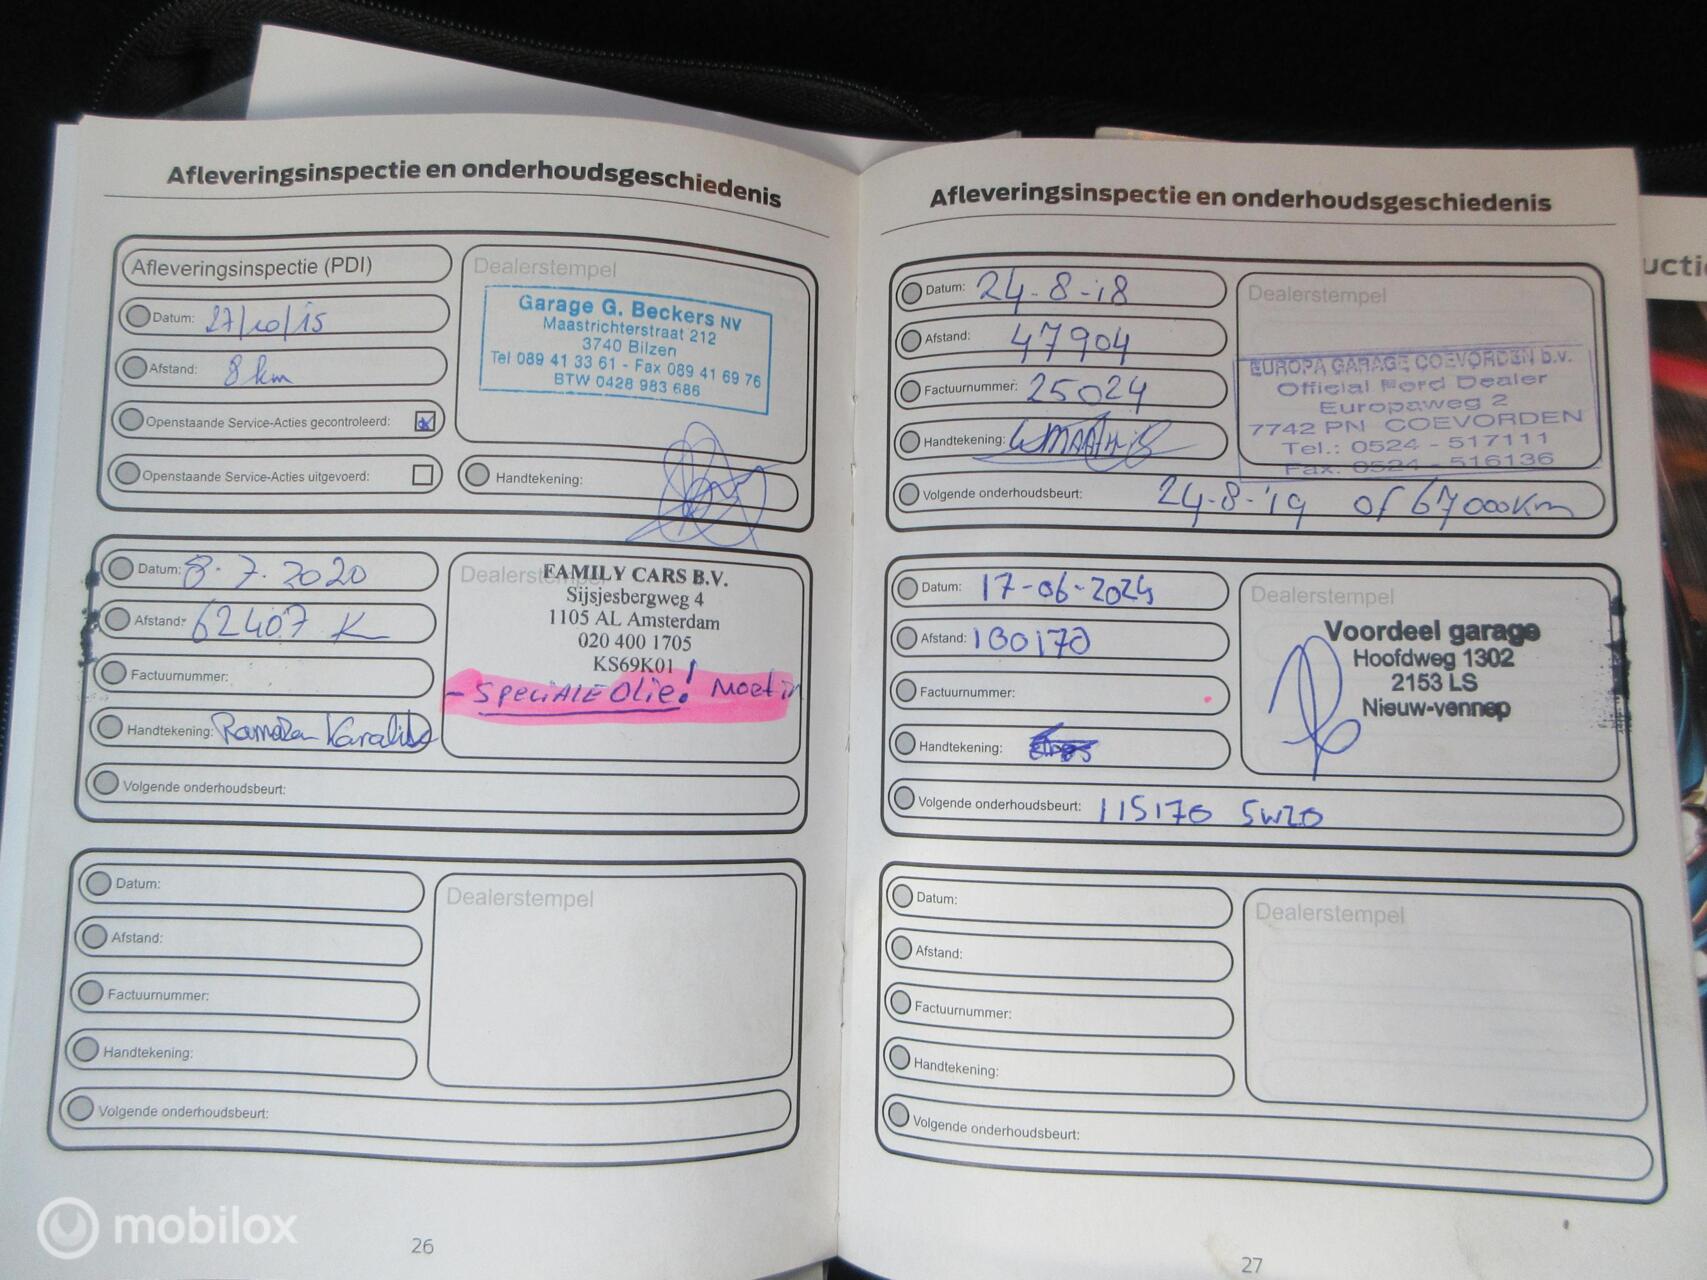 Afleveringsinspectie en onderhoudsgeschiedenis
Afleveringsinspectie (PDI)
Datum: 27/10/15
Afstand: 8 km
Openstaande Service-Acties gecontroleerd:
Openstaande Service-Acties uitgevoerd:
Dealerstempel
Garage G. Beckers NV
Maastrichterstraat 212
3740 Bilzen
Tel 089 41 33 61 - Fax 089 41 69 76
BTW 0428 983 686
Handtekening:
Datum: 8-7-2020
Afstand: 62407 K
Factuurnummer:
Handtekening:
Volgende onderhoudsbeurt:
Dealerstempel
FAMILY CARS B.V.
Sijsjesbergweg 4
1105 AL Amsterdam
020 400 1705
KS69K01
- SPECIALE Olie! Moet in
Datum:
Afstand:
Factuurnummer:
Handtekening:
Volgende onderhoudsbeurt:
Dealerstempel
26
Afleveringsinspectie en onderhoudsgeschiedenis
Datum: 24-8-18
Afstand: 47904
Factuurnummer: 25024
Handtekening:
Volgende onderhoudsbeurt: 24-8-'19 of 67000km
Dealerstempel
EUROPA GARAGE COEVORDEN b.v.
Official Ford Dealer
Europaweg 2
7742 PN COEVORDEN
Tel.: 0524 - 517111
Fax. 0524 - 516136
Datum: 17-06-2024
Afstand: 100170
Factuurnummer:
Handtekening:
Volgende onderhoudsbeurt: 115170 5W20
Dealerstempel
Voordeel garage
Hoofdweg 1302
2153 LS
Nieuw-vennep
Datum:
Afstand:
Factuurnummer:
Handtekening:
Volgende onderhoudsbeurt:
Dealerstempel
27
mobilox